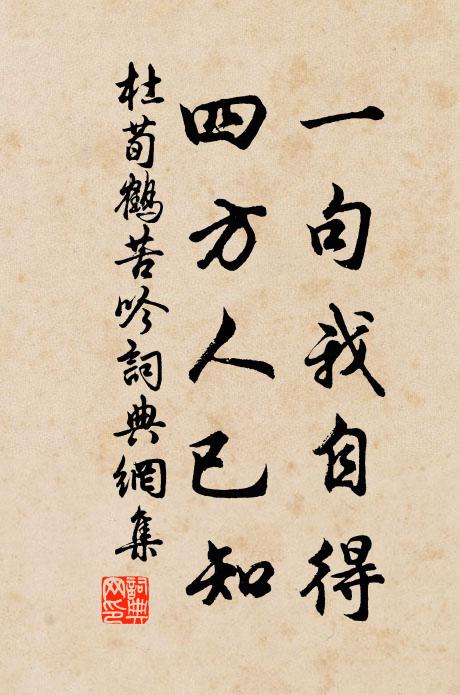 一句我自得
四方人已知
杜荀鶴苦吟詞典網集
詞典
網印